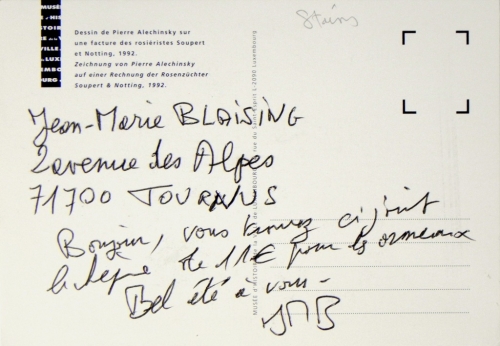 MUSÉE
D'HIST
OIRE
DE LA
VILLE
DE LUX
EMBO
URG
Dessin de Pierre Alechinsky sur
une facture des rosiéristes Soupert
et Notting, 1992.
Zeichnung von Pierre Alechinsky
auf einer Rechnung der Rosenzüchter
Soupert & Notting, 1992.
Jean-Marie BLAISING
2 avenue des Alpes
71700 TOURNUS
Bonjour, vous trouvez ci joint
le chèque de 11€ pour les ormeaux
Bel été à vous -
JMB
MUSÉE D'HISTOIRE DE LA VILLE DE LUXEMBOURG rue du Saint-Esprit L-2090 Luxembourg